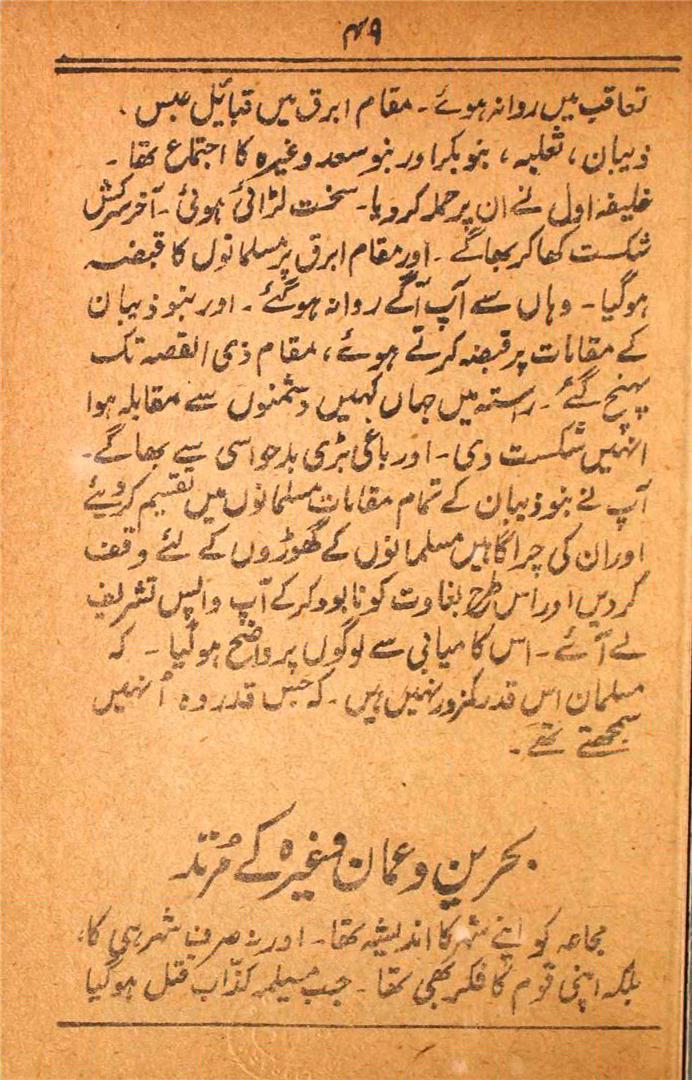 ۴۹
تعاقب میں روانہ ہوئے۔ مقام ابرق میں قبائل عبس،
ذیبان، ثعلبہ، بنو بکر اور بنو سعد وغیرہ کا اجتماع تھا۔
خلیفہ اول نے ان پر حملہ کر دیا۔ سخت لڑائی ہوئی۔ آخر سرکش
شکست کھا کر بھاگے۔ اور مقام ابرق پر مسلمانوں کا قبضہ
ہو گیا۔ وہاں سے آپ آگے روانہ ہو گئے۔ اور بنو ذیبان
کے مقامات پر قبضہ کرتے ہوئے، مقام ذی القصہ تک
پہنچ گئے۔ راستہ میں جہاں کہیں دشمنوں سے مقابلہ ہوا
انہیں شکست دی۔ اور باغی بڑی بدحواسی سے بھاگے۔
آپ نے بنو ذیبان کے تمام مقامات مسلمانوں میں تقسیم کر دیئے
اور ان کی چراگاہیں مسلمانوں کے گھوڑوں کے لئے وقف
کر دیں اور اس طرح بغاوت کو نابود کر کے آپ واپس تشریف
لے آئے۔ اس کامیابی سے لوگوں پر واضح ہو گیا۔ کہ
مسلمان اس قدر کمزور نہیں ہیں۔ کہ جس قدر وہ اُنہیں
سمجھتے تھے۔
بحرین و عمان وغیرہ کے مُرتد
مجاعہ کو اپنے شہر کا اندیشہ تھا۔ اور نہ صرف شہر ہی کا،
بلکہ اپنی قوم کا فکر بھی تھا۔ جب مسیلمہ کذّاب قتل ہو گیا